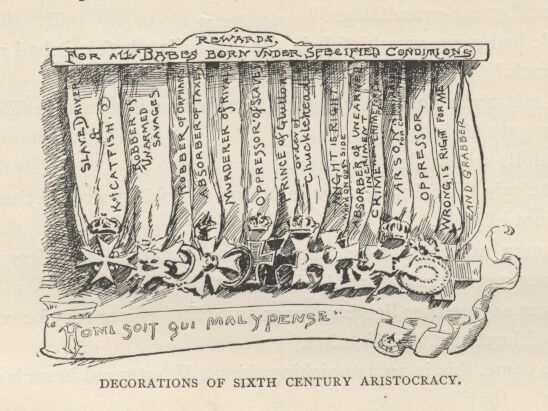 REWARDS.
FOR ALL BABES BORN UNDER SPECIFIED CONDITIONS
SLAVE DRIVER
&
K of CATFISH.
ROBBER OF
UNARMED
SAVAGES
ROBBER OF ORPHANS
ABSORBER OF TAXES
MURDERER OF RIVAL
OPPRESSOR OF SLAVES
PRINCE of Gluttons
order of
Chucklehead
MIGHT IS RIGHT
WHEN ON OUR SIDE
ABSORBER OF UNEARNED
INCREMENT
CRIME
ARSON
OPPRESSOR
WRONG IS RIGHT FOR ME
LAND GRABBER
"HONI SOIT QUI MAL Y PENSE"
DECORATIONS OF SIXTH CENTURY ARISTOCRACY.